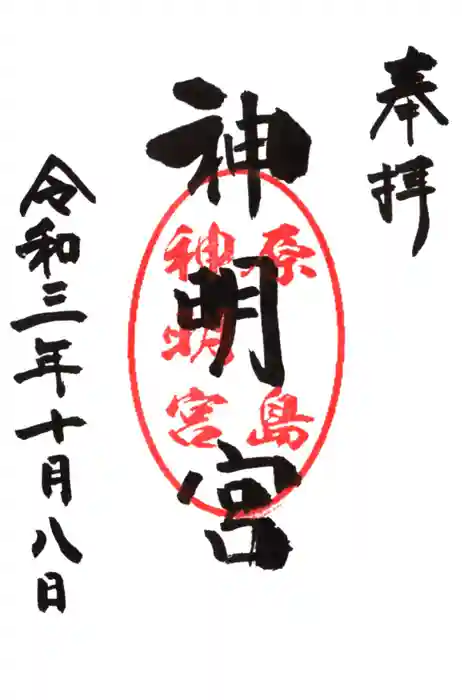 奉拝
神明宮
原島
神明宮
令和三年十月八日